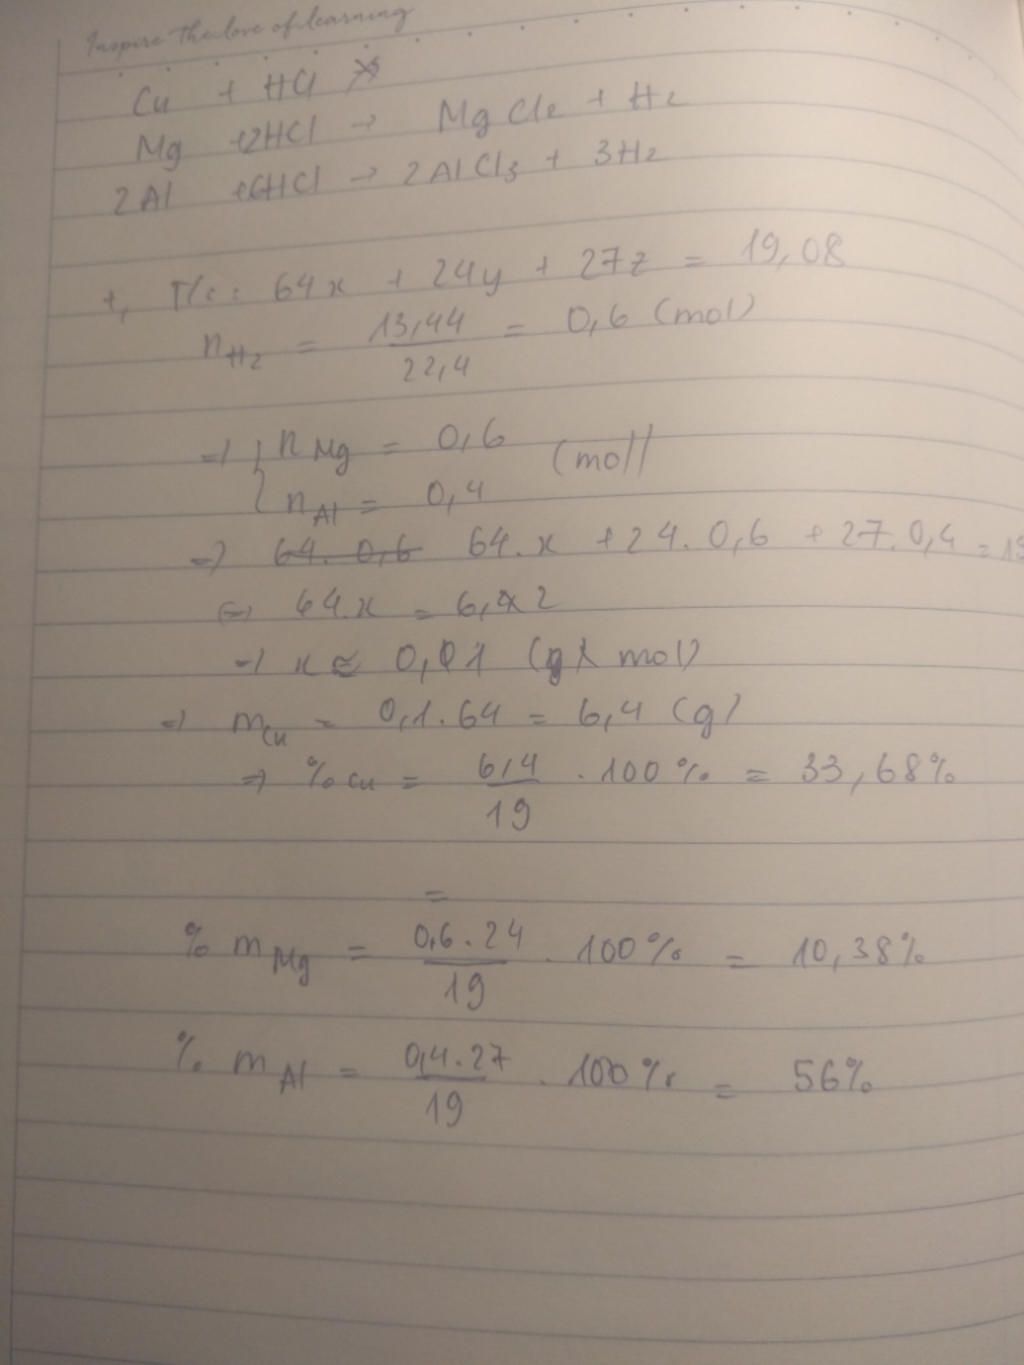 Inspire the love of learning
Cu + HCl ×
Mg + 2HCl → MgCl2 + H2
2Al + 6HCl → 2AlCl3 + 3H2
+, T/c: 64x + 24y + 27z = 19,08
nH2 = 13,44 / 22,4 = 0,6 (mol)
=> { nMg = 0,6 (mol)
nAl = 0,4
=> 64. 0,6 64.x + 24. 0,6 + 27. 0,4 =
<=> 64.x = 6,2
=> x ≈ 0,01 ( mol)
=> mCu = 0,1.64 = 6,4 (g)
=> % Cu = 6,4 / 19 . 100% = 33,68%
=
% mMg = 0,6.24 / 19 . 100% = 10,38%
% mAl = 0,4.27 / 19 . 100% = 56%